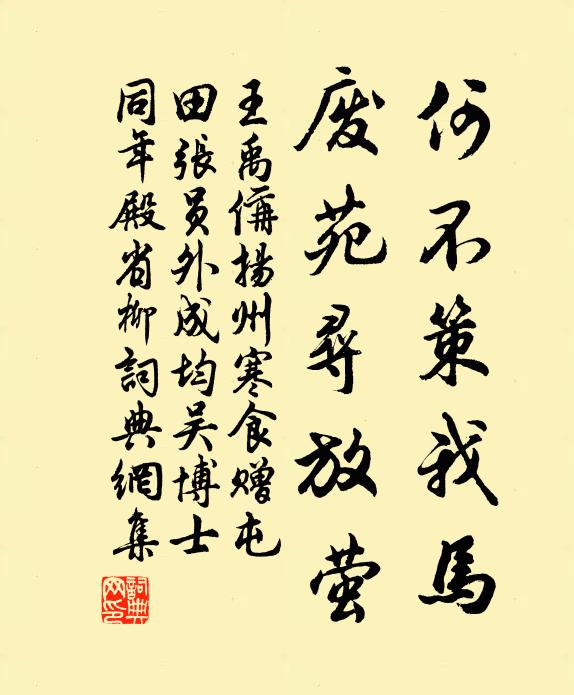 何不策我馬
废苑尋放萤
王禹偁揚州寒食赠屯
田張員外成均吴博士
同年殿省柳詞典網集
詞典網印